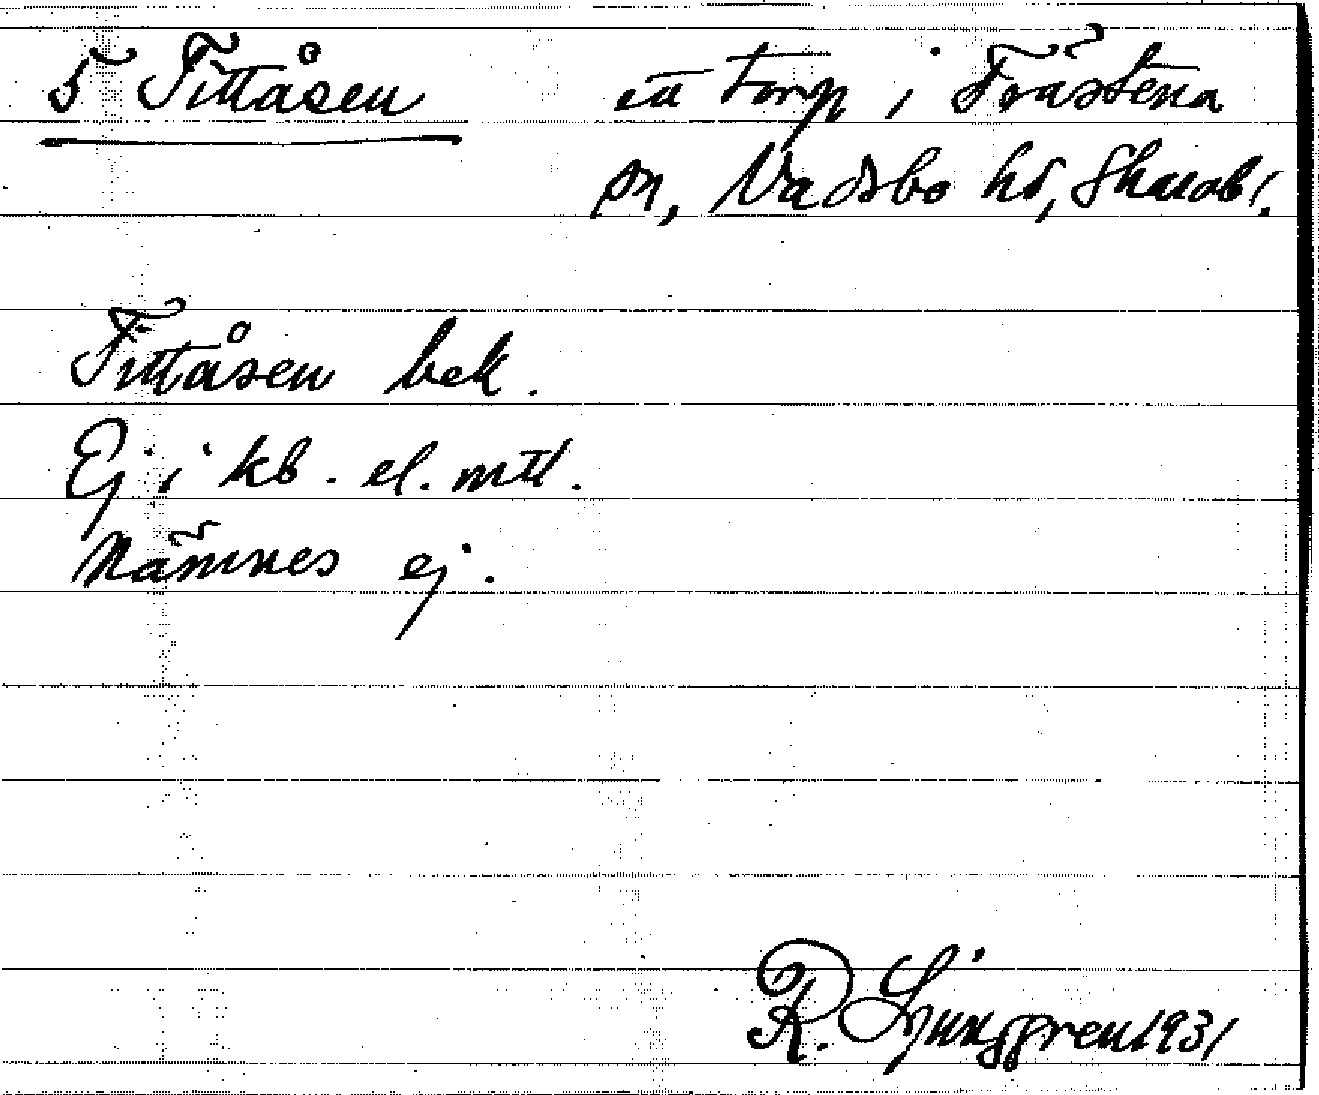 5 Tittåsen ett torp i Trästena
sn, Vadsbo hd, Skarabl.
Tittåsen bek.
Ej i kb. el. mtl.
Nämnes ej.
R. Ljunggren 1931